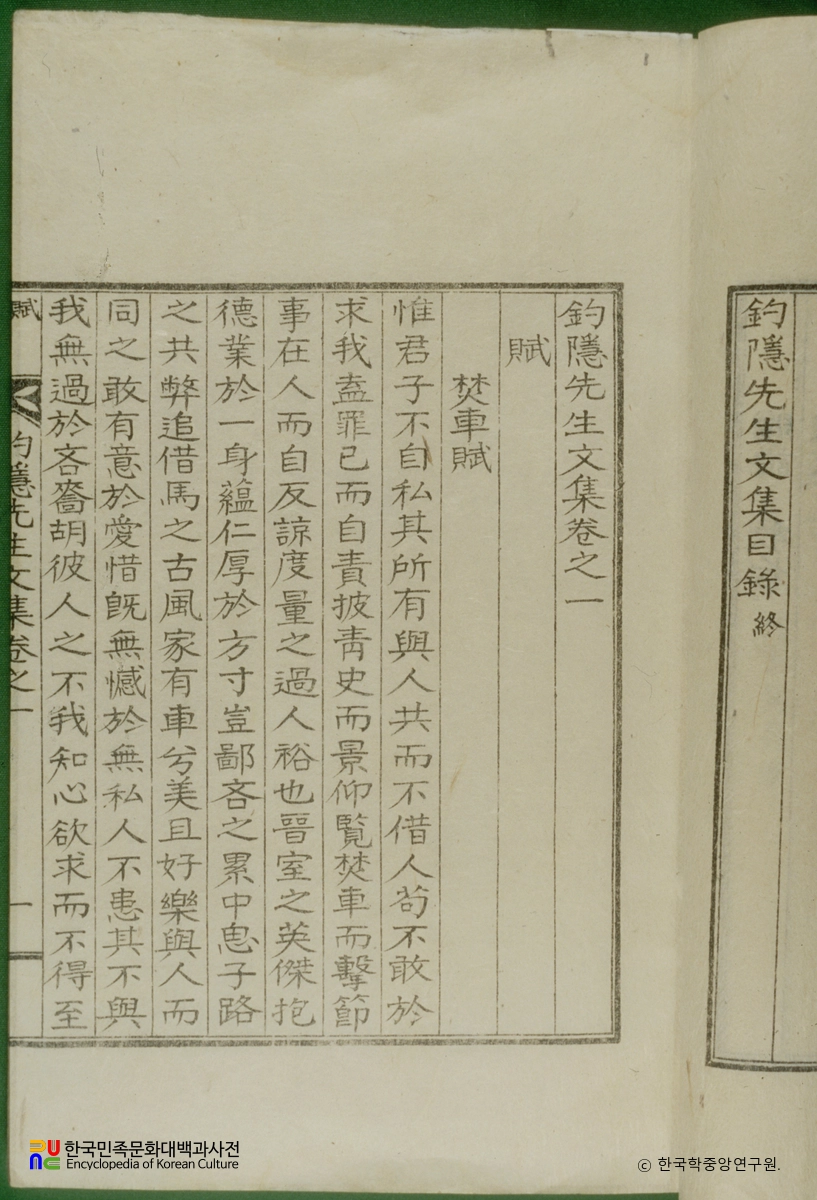 釣隱先生文集目錄 終
釣隱先生文集卷之一
賦
焚車賦
惟君子不自私其所有與人共而不借人苟不敢於
求我盍罪已而自責披靑史而景仰覽焚車而擊節
事在人而自反諒度量之過人裕也晉室之英傑抱
德業於一身蘊仁厚於方寸豈鄙吝之累中思子路
之共弊追借馬之古風家有車兮美且好樂與人而
同之敢有意於愛惜旣無憾於無私人不患其不與
我無過於吝嗇胡彼人之不我知心欲求而不得至
賦
釣隱先生文集卷之一
一
한국민족문화대백과사전
Encyclopedia of Korean Culture
© 한국학중앙연구원.